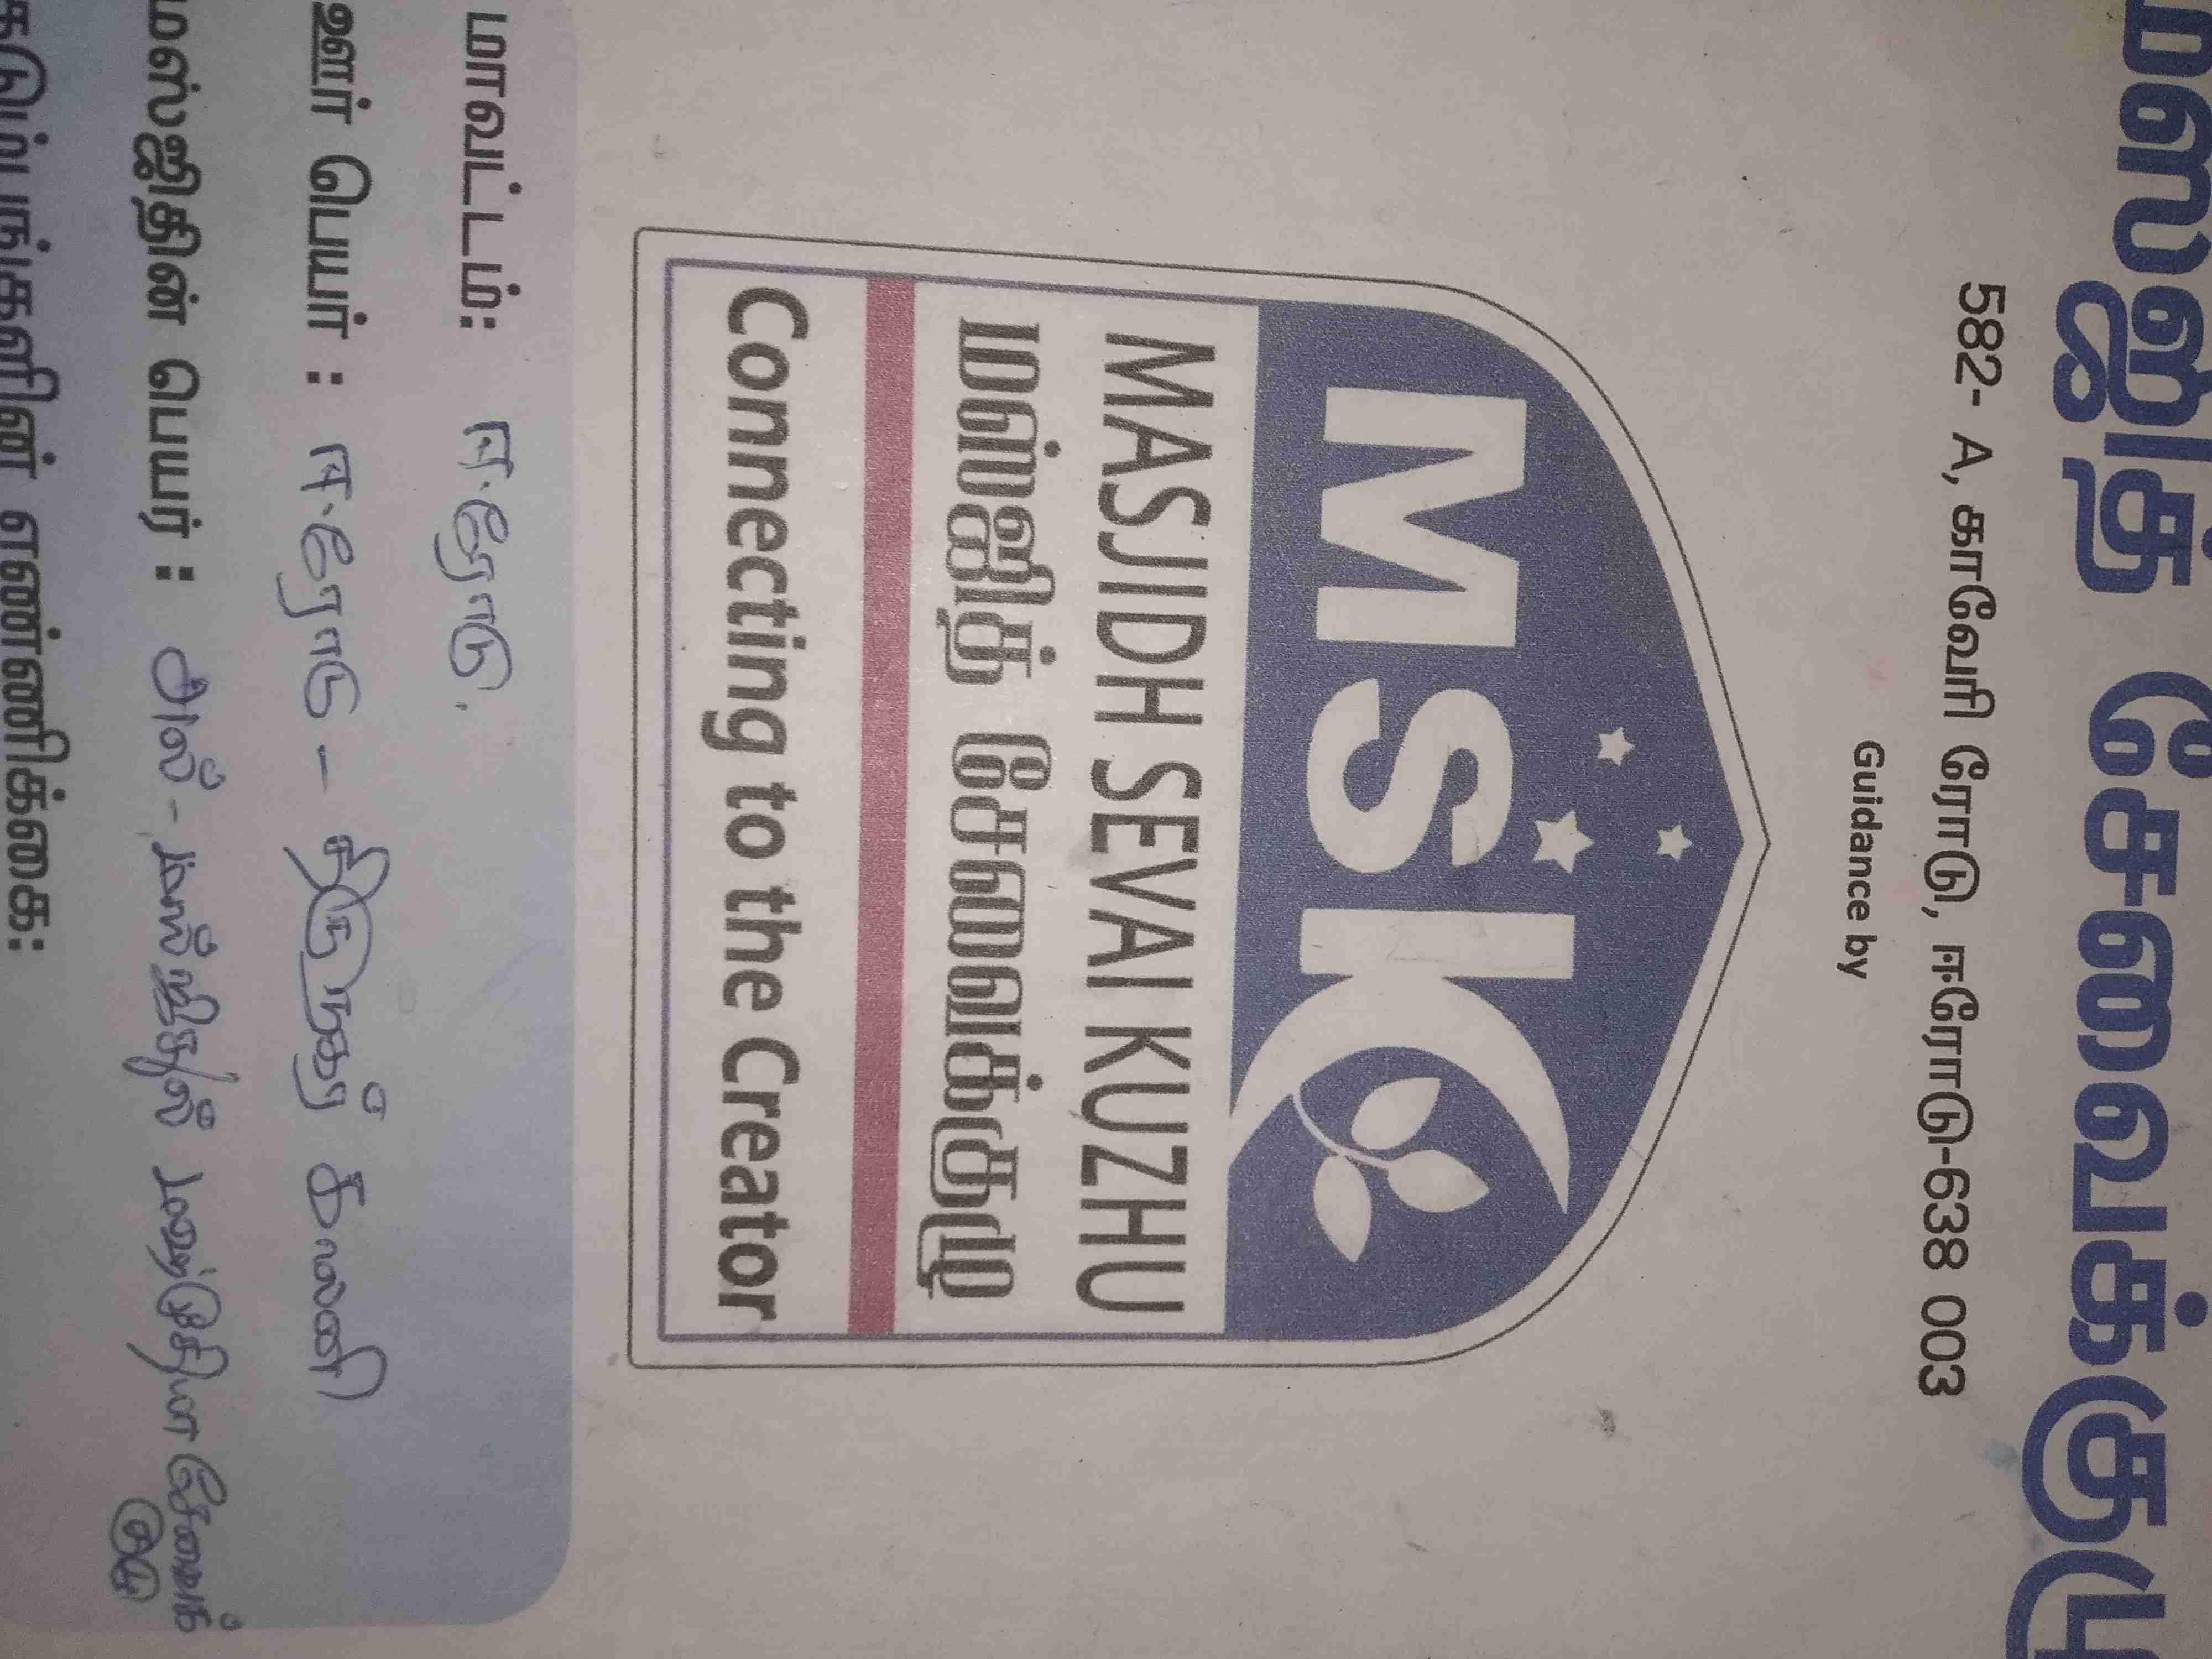 மஸ்ஜித் சேவைக்குழு
582- A, காவேரி ரோடு, ஈரோடு-638 003
Guidance by
MSK
MASJIDH SEVAI KUZHU
மஸ்ஜித் சேவைக்குழு
Connecting to the Creator
மாவட்டம்: ஈரோடு.
ஊர் பெயர் : ஈரோடு - திருநகர் காலனி
மஸ்ஜிதின் பெயர் : அல் - மஸ்ஜிதுல் சேவைக்
குழு
குடும்பங்களின் எண்ணிக்கை: